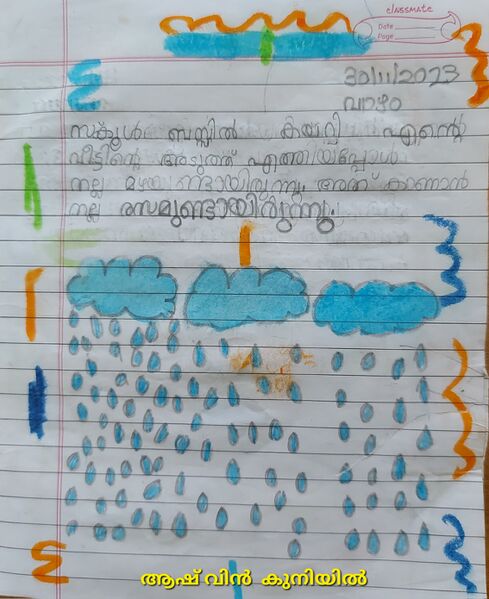 classmate
Date
Page
30/11/2023
വ്യാഴം
സ്കൂൾ ബസ്സിൽ കയറി എന്റെ
വീട്ടിന്റെ അടുത്ത് എത്തിയപ്പോൾ
നല്ല മഴയുണ്ടായിരുന്നു. അത് കാണാൻ
നല്ല രസമുണ്ടായിരുന്നു.
ആഷ് വിൻ കുനിയിൽ